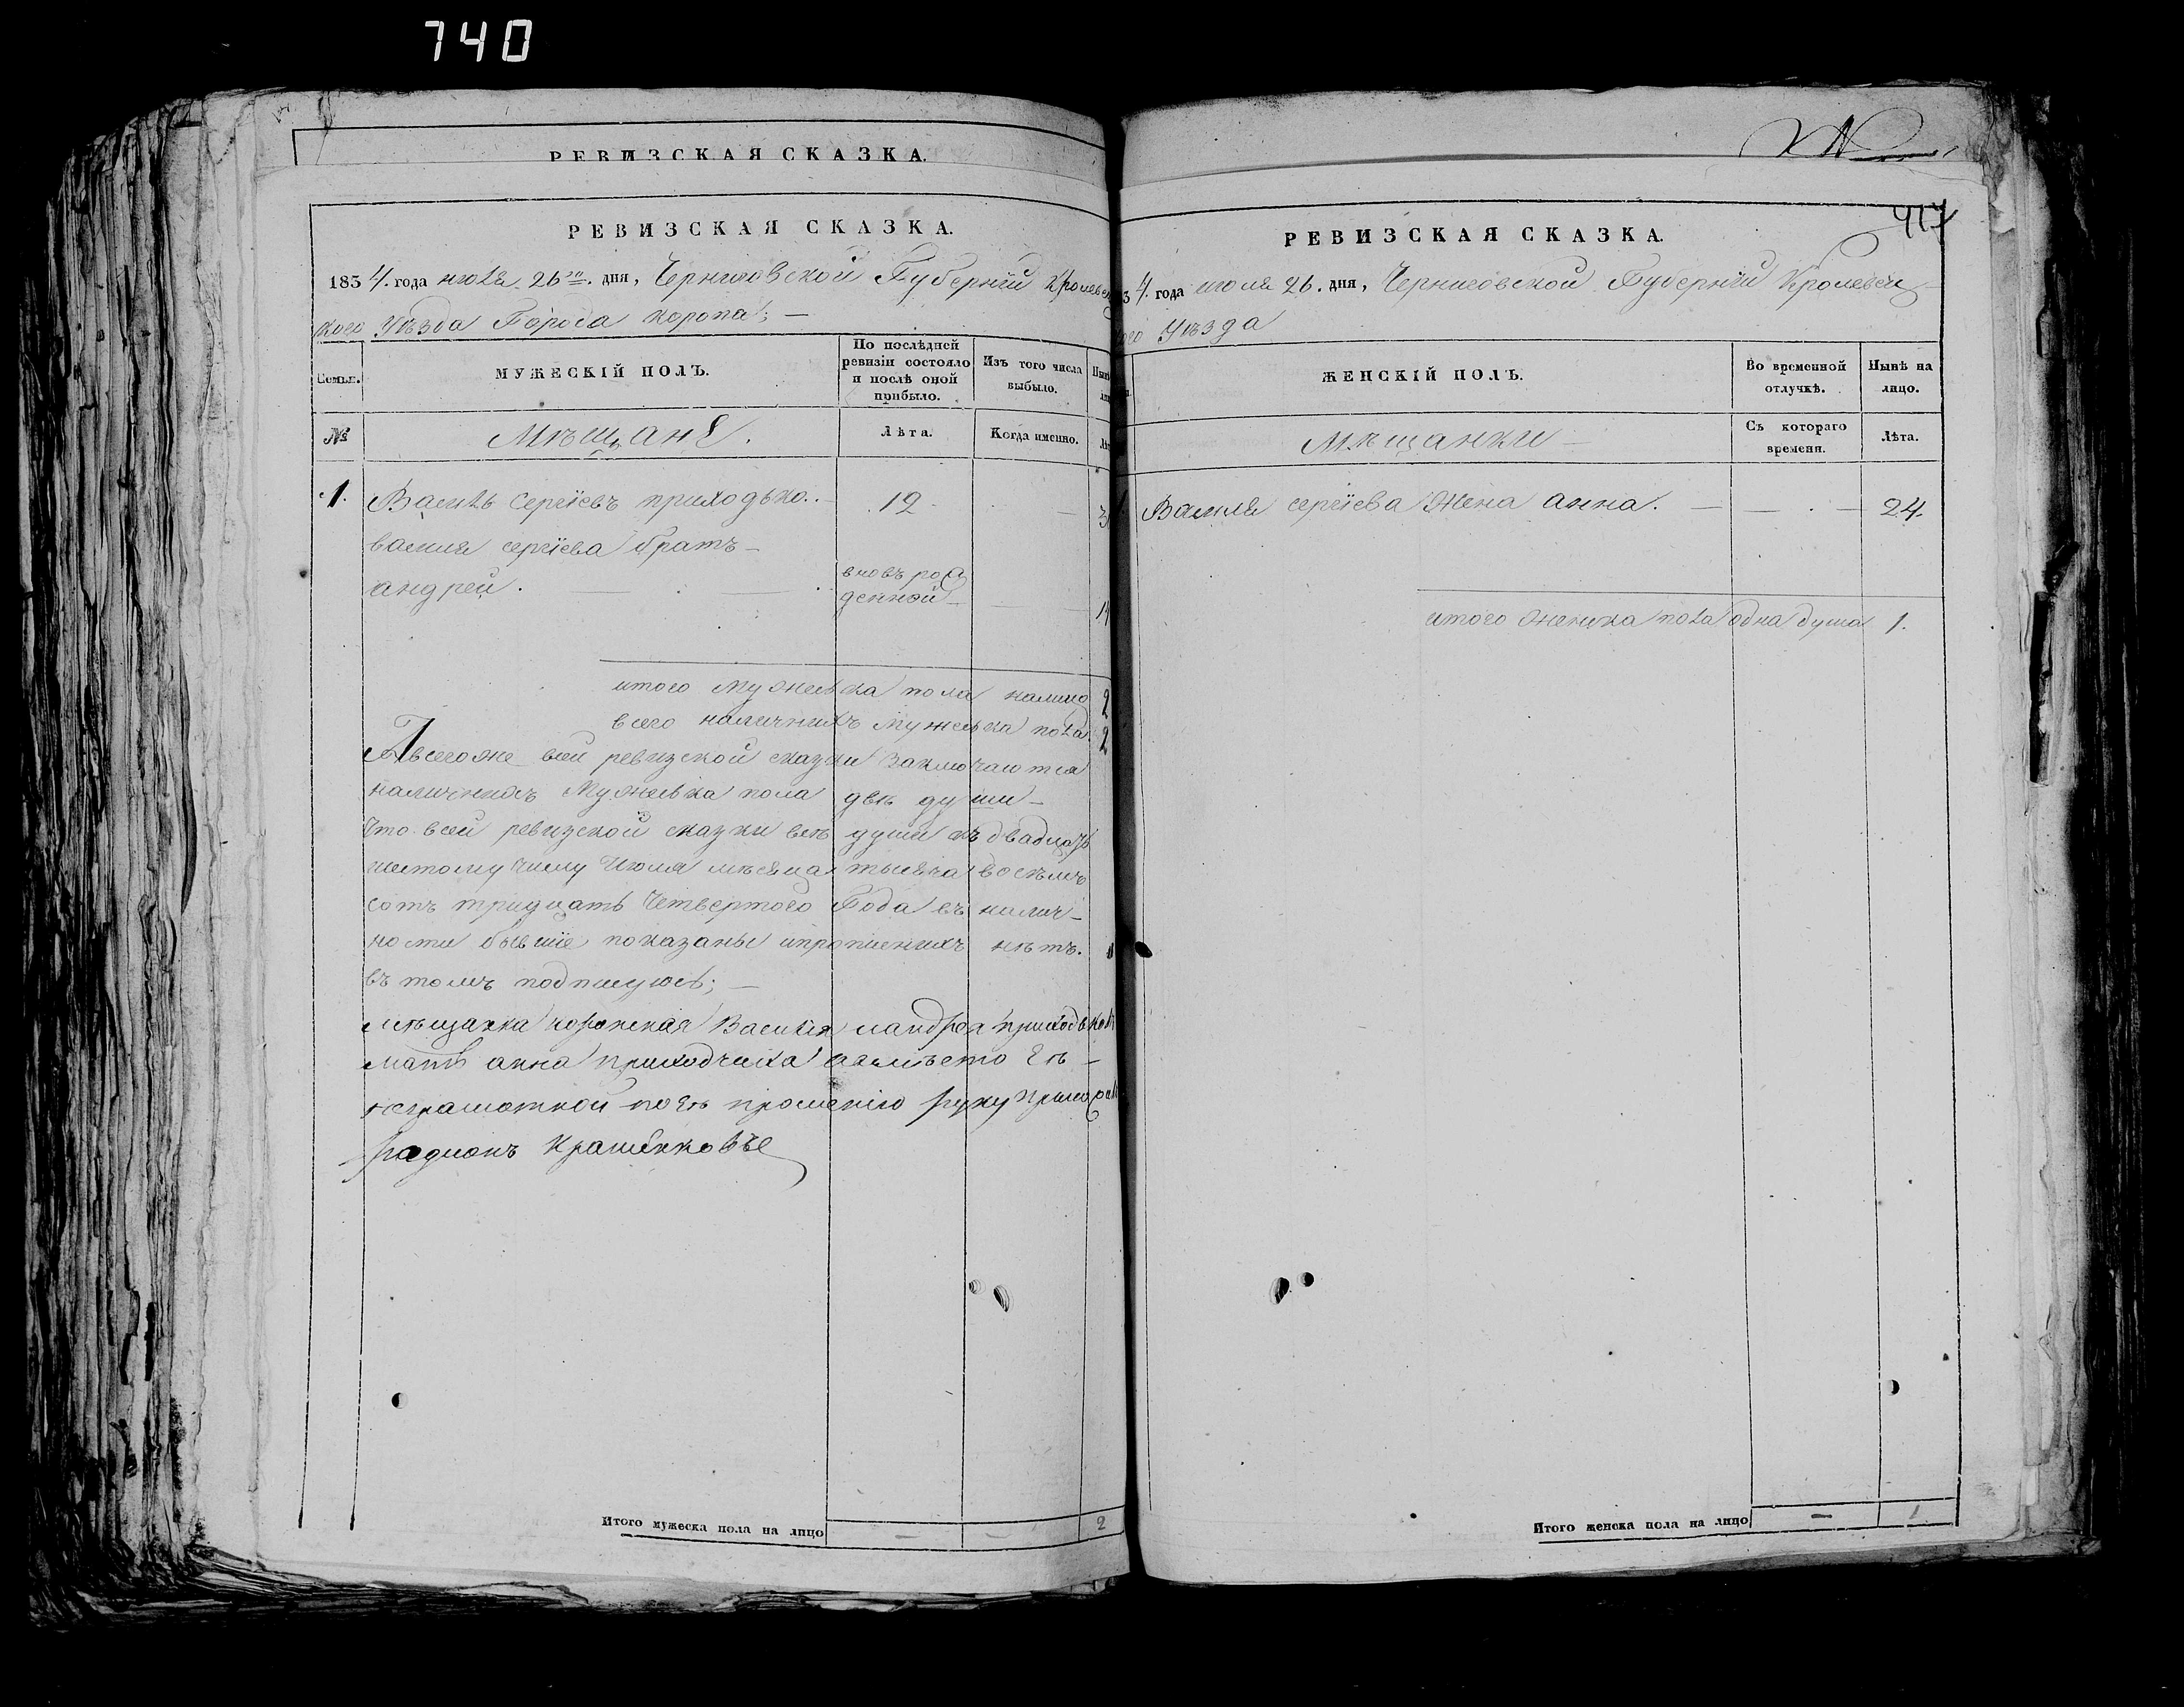 740
РЕВИЗСКАЯ СКАЗКА.
РЕВИЗСКАЯ СКАЗКА.
1834. года июля 26го. дня, Черниговской Губернїи Кролевец
кого Уѣзда Города Коропа; —
Семьи.
МУЖЕСКІЙ ПОЛЪ.
По послѣдней ревизіи состояло и послѣ оной прибыло.
Изъ того числа выбыло.
№
Мѣщане.
Лѣта.
Когда именно.
1.
Василь Сергїевъ приходько.
12
василя сергїева братъ
андрей.
вновь рож
денной
итого мужеска пола налицо 2
всего наличнихъ мужеска пола 2
Авсегоже всей ревизской сказки заключаются
наличнихъ Мужеска пола двѣ души
Что всей ревизской сказки всѣ души къ двадцать
шестому числу Июля мѣсяца тысяча восѣмъ
сотъ тридцать Четвертого Года въ налич-
ности бывшїе показаны ипрописнихъ нѣтъ.
въ томъ подпишуюсь;
мѣщанка коропская Василия иандрея приходьков
мать анна приходчиха авмѣсто Еѣ
неграмотной поЕѣ прошению руку прилож
радионъ
417
РЕВИЗСКАЯ СКАЗКА.
34. года июля 26. дня, Черниговской Губернїи Кролевец
кого Уѣзда
ЖЕНСКІЙ ПОЛЪ.
Во временной отлучкѣ.
Нынѣ на лицо.
Мѣщанки
Съ котораго времени.
Лѣта.
Василя сергїева Жена анна.
24.
итого женска пола одна душа 1.
Итого мужеска пола на лицо
2
Итого женска пола на лицо
1